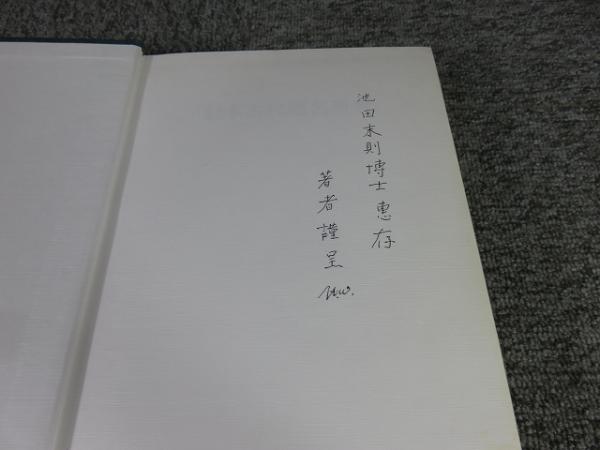 池田末則博士惠存
著者謹呈